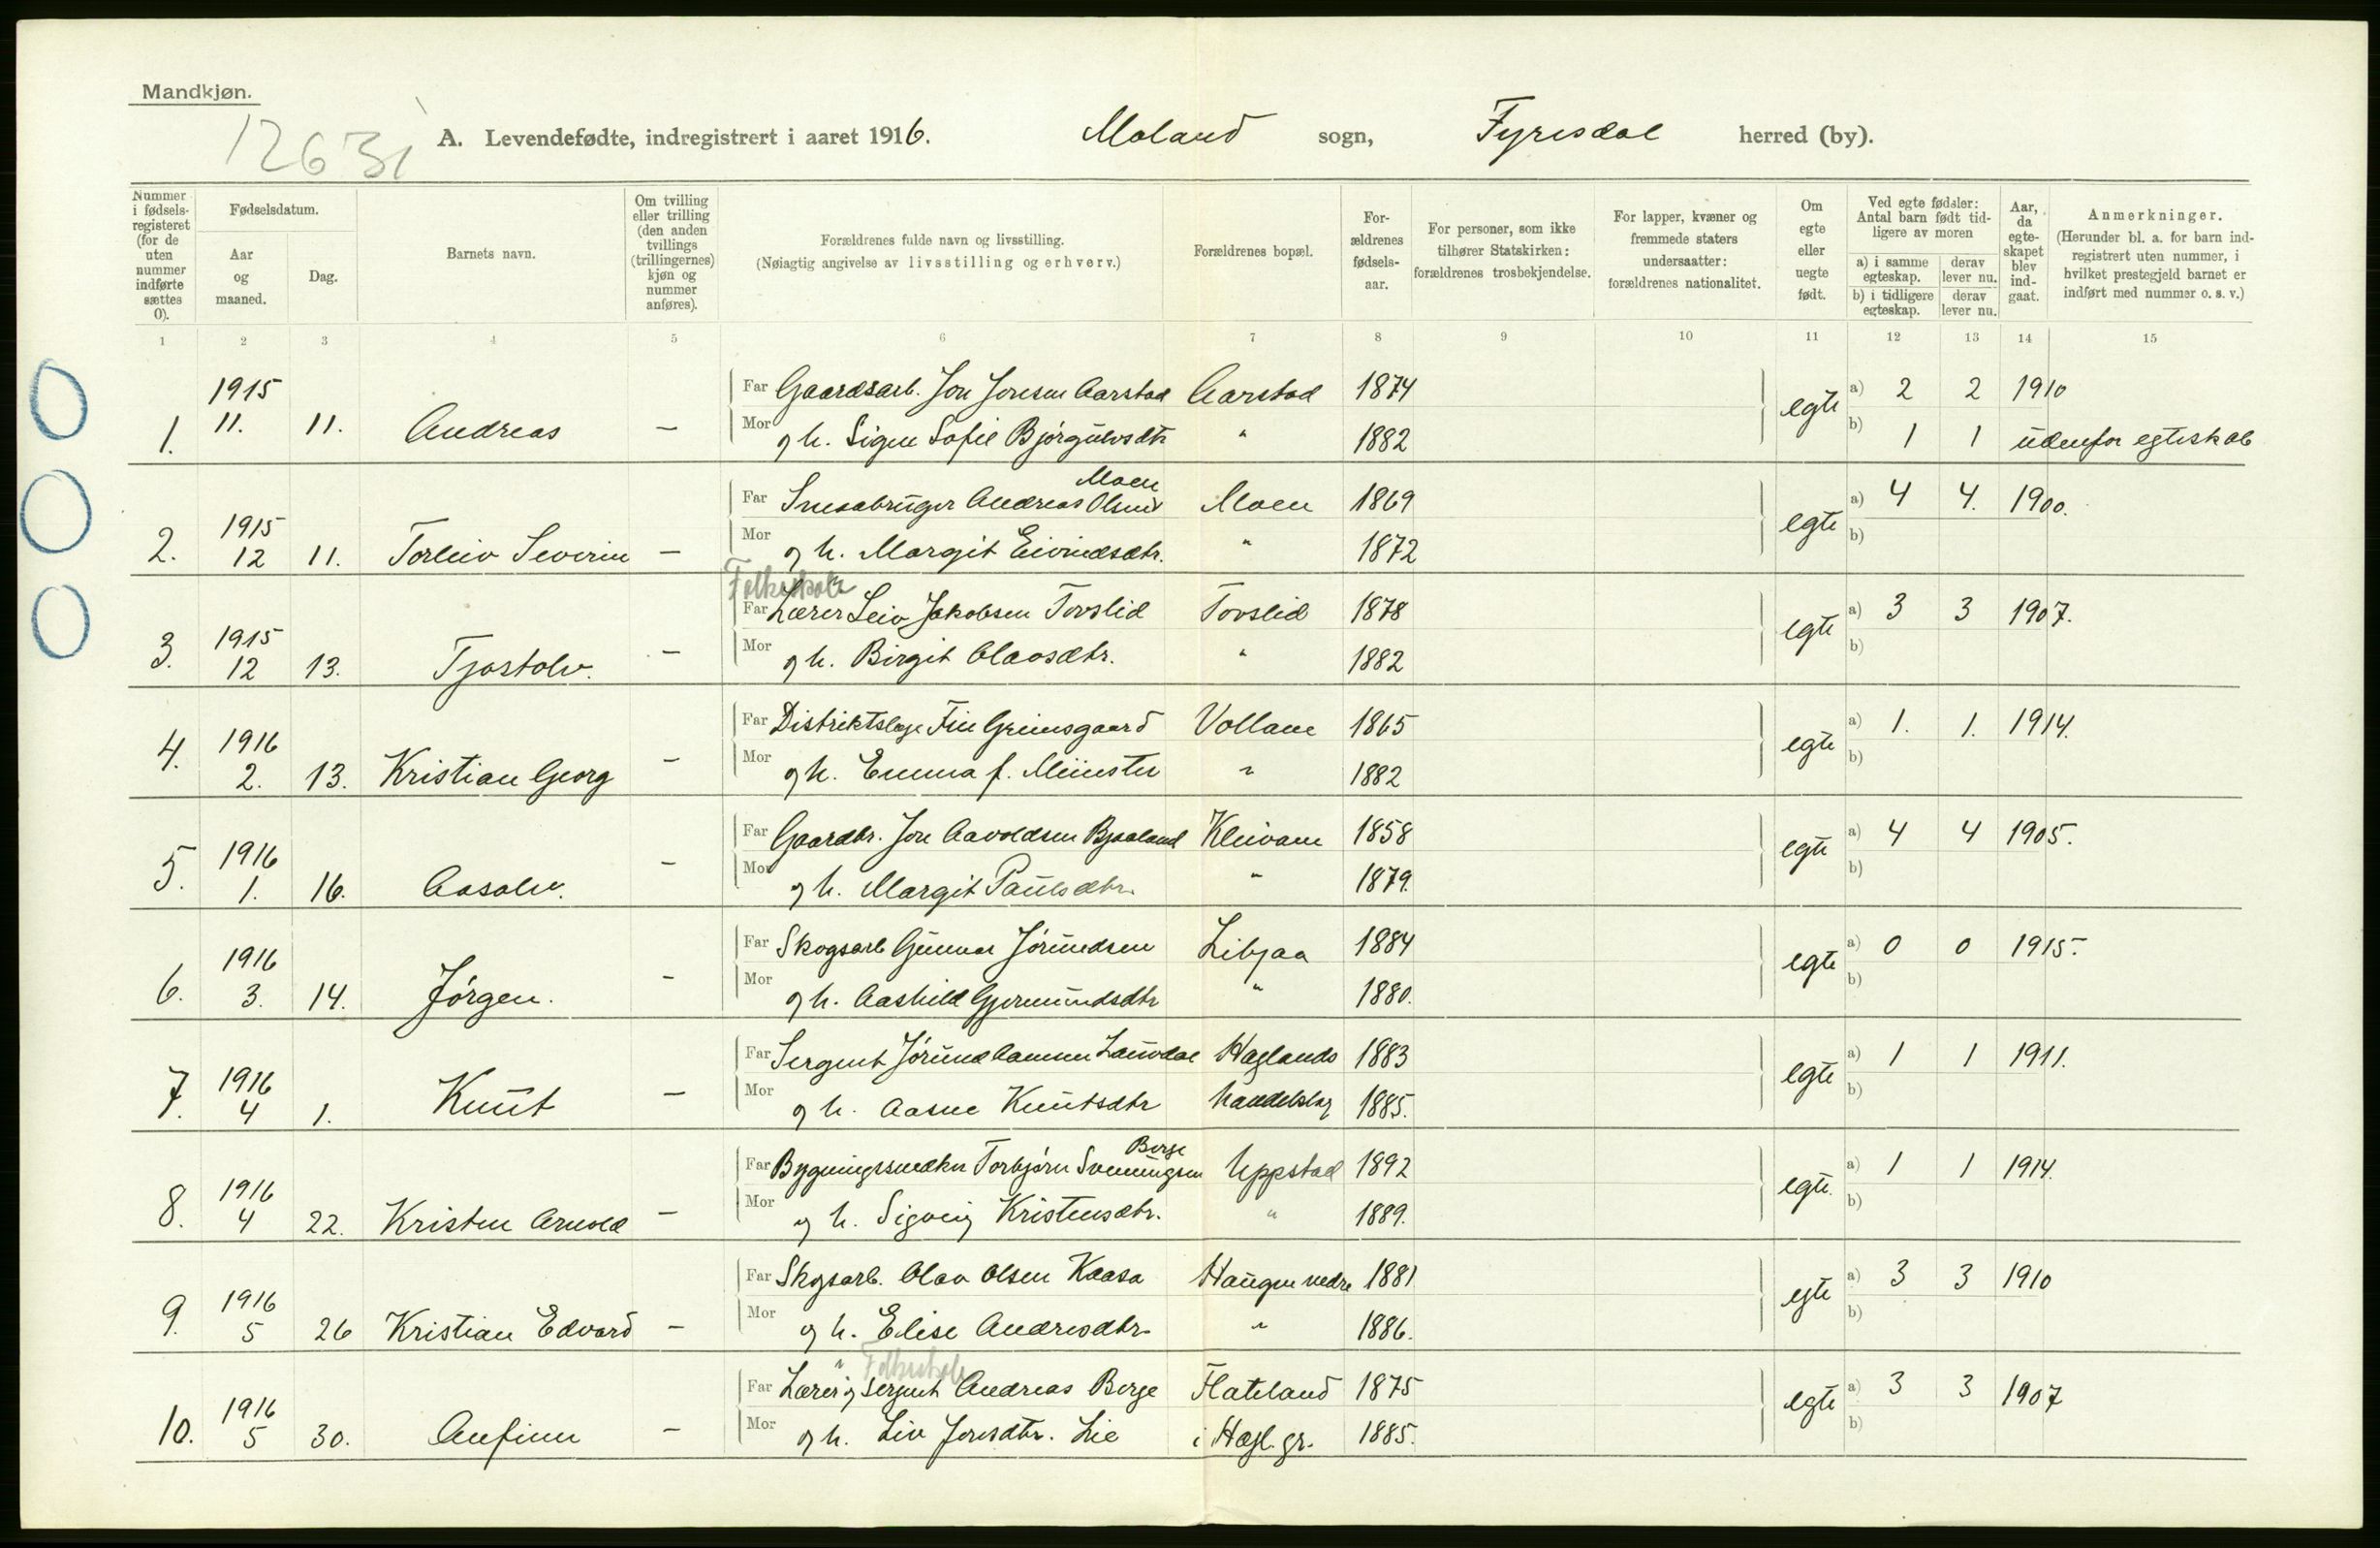 Mandkjøn.
12631
A. Levendefødte, indregistrert i aaret 1916. Moland sogn, Fyresdal herred (by).
Nummer i fødselsregisteret (for de uten nummer indførte sættes 0).
Fødselsdatum.
Aar og maaned.
Dag.
Barnets navn.
Om tvilling eller trilling (den anden tvillings (trillingernes) kjøn og nummer anføres).
Forældrenes fulde navn og livsstilling.
(Nøiagtig angivelse av livsstilling og erhverv.)
Forældrenes bopæl.
Forældrenes fødselsaar.
For personer, som ikke tilhører Statskirken: forældrenes trosbekjendelse.
For lapper, kvæner og fremmede staters undersaatter: forældrenes nationalitet.
Om egte eller uegte født.
Ved egte fødsler: Antal barn født tidligere av moren
a) i samme egteskap. derav lever nu.
b) i tidligere egteskap. derav lever nu.
Aar, da egteskapet blev indgaat.
Anmerkninger.
(Herunder bl. a. for barn indregistrert uten nummer, i hvilket prestegjeld barnet er indført med nummer o. s. v.)
1 2 3 4 5 6 7 8 9 10 11 12 13 14 15
1. 1915 11. 11. Andreas — Far Gaardsarb. Jon Jonsen Aarstad Aarstad 1874 egte a) 2 2 1910
Mor og h. Signe Sofie Bjørgulvsdtr " 1882 b) 1 1 udenfor egteskab
2. 1915 12 11. Torleiv Severin — Far Smaabruger Andreas Olsen Moen Moen 1869 egte a) 4 4. 1900.
Mor og h. Margit Eivindsdtr. " 1872 b)
Folkeskole
3. 1915 12 13. Tjostolv. — Far Lærer Leiv Jakobsen Tovslid Tovslid 1878 egte a) 3 3 1907.
Mor og h. Birgit Olavsdtr. " 1882 b)
4. 1916 2. 13. Kristian Georg — Far Distriktslæge Fin Grimsgaard Vollane 1865 egte a) 1. 1. 1914.
Mor og h. Emma f. Münster " 1882 b)
5. 1916 1. 16. Aasolv. — Far Gaardbr. Jon Aavoldsen Bjaaland Kleivane 1858 egte a) 4 4 1905.
Mor og h. Margit Paulsdtr. " 1879. b)
6. 1916 3. 14. Jørgen. — Far Skogsarb Gunnar Jørundsen Libjaa 1884 egte a) 0 0 1915.
Mor og h. Aashild Gjermundsdtr " 1880. b)
7. 1916 4 1. Knut — Far Sergent Jørund Aamun Lauvdal Haglands 1883 egte a) 1 1 1911.
Mor og h. Aasne Knutsdtr handelslag 1885. b)
8. 1916 4 22. Kristen Arnold — Far Bygningssnedker Torbjørn Svenningsen Berge Uppstad 1892 egte. a) 1 1 1914.
Mor og h. Signeig Kristensdtr. " 1889. b)
9. 1916 5 26 Kristian Edvard — Far Skogsarb. Olav Olsen Kaasa Haugen nedre 1881 egte a) 3 3 1910
Mor og h. Elise Andresdtr. " 1886. b)
Folkeskole
10. 1916 5 30. Anfinn — Far Lærer og sergent Andreas Berge Flateland 1875 egte a) 3 3 1907
Mor og h. Liv Jonsdtr. Lie i Hagl. gr. 1885. b)